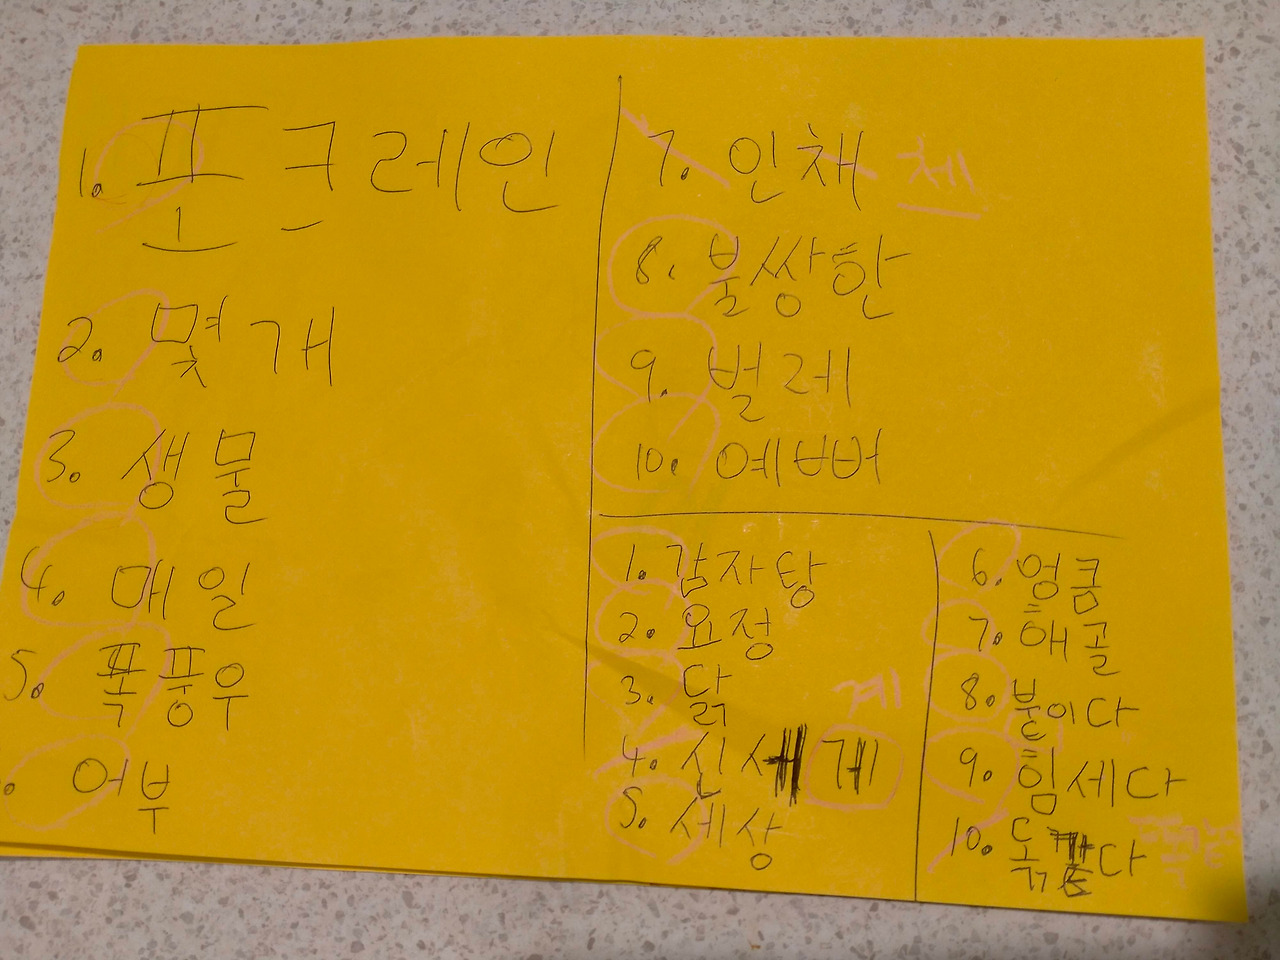 1. 포크레인
2. 몇 개
3. 생물
4. 매일
5. 폭풍우
. 어부
7. 인채 체
8. 불쌍한
9. 벌레
10. 예뻐
1. 감자탕
2. 요정
3. 닭
4. 신세게 계
5. 세상
6. 엉큼
7. 해골
8. 붙이다
9. 힘세다
10.